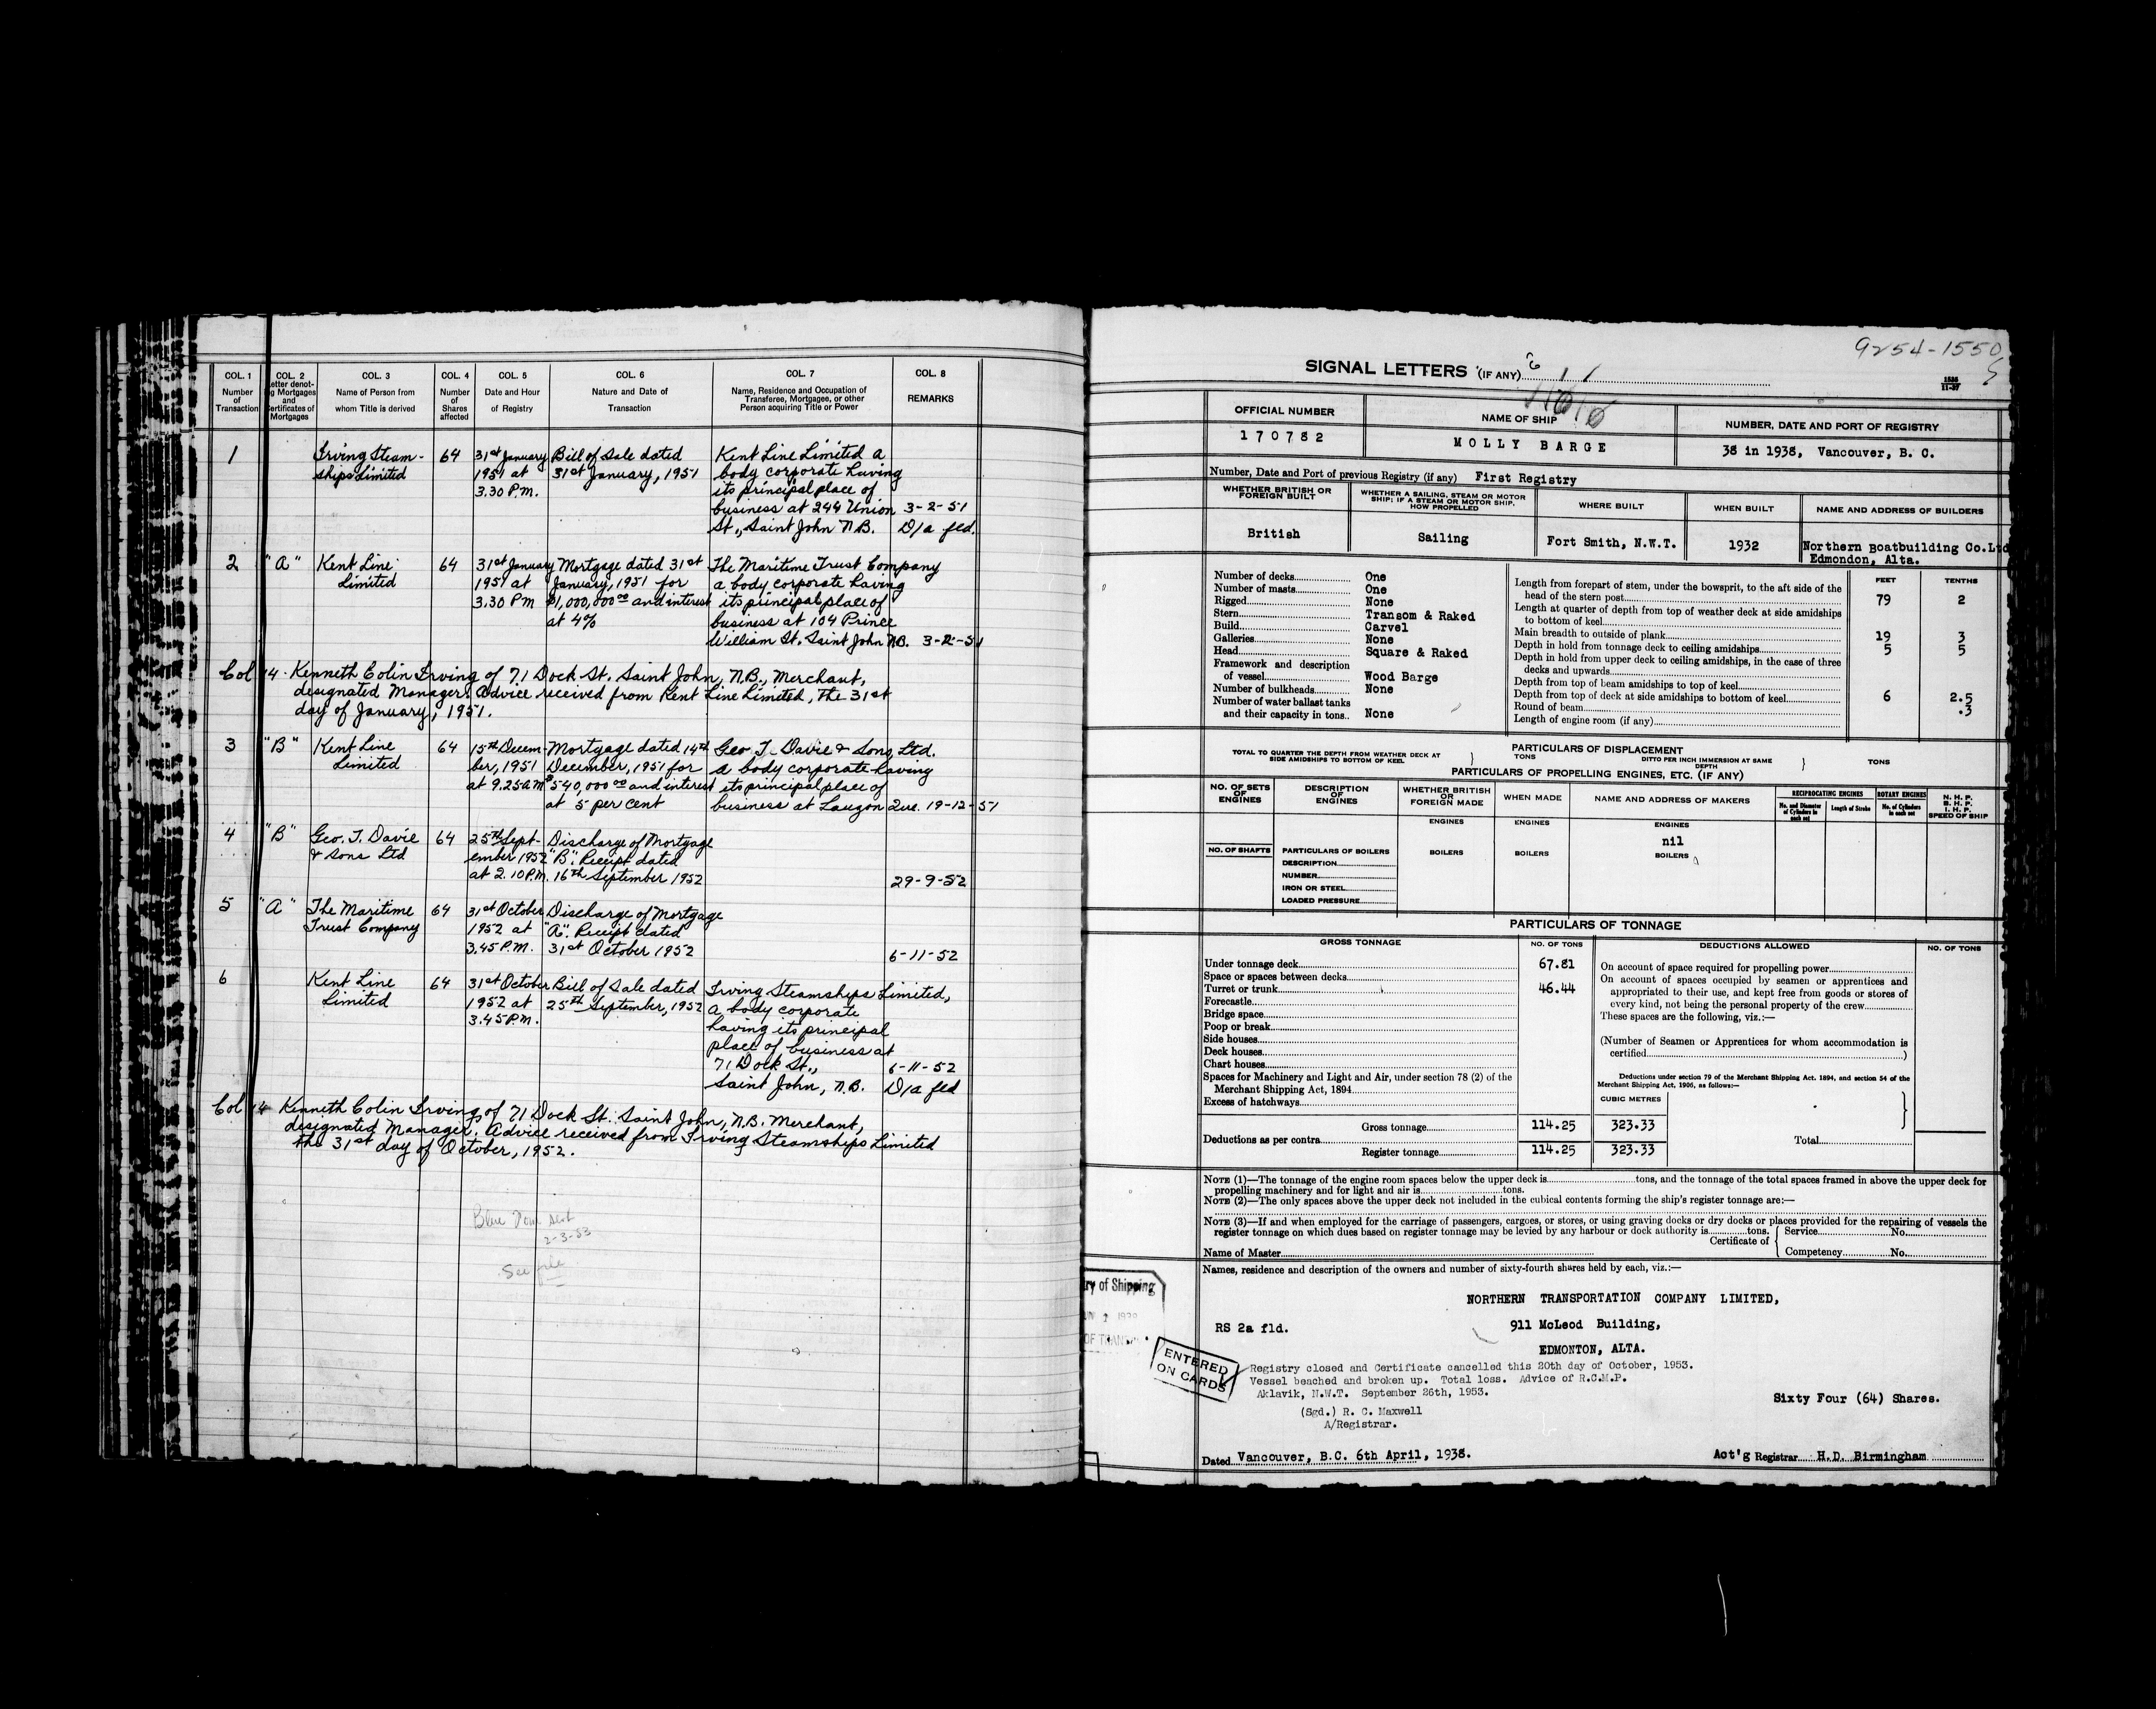 COL. 1 COL. 2 COL. 3 COL. 4 COL. 5 COL. 6 COL. 7 COL. 8
Number of Transaction
etter denot-
ng Mortgages
and
Certificates of
Mortgages
Name of Person from
whom Title is derived
Number
of
Shares
affected
Date and Hour
of Registry
Nature and Date of
Transaction
Name, Residence and Occupation of
Transferee, Mortgagee, or other
Person acquiring Title or Power
REMARKS
1 Irving Steam- 64 31st January Bill of Sale dated Kent Line Limited a
ships Limited 1951 at 31st January, 1951 body corporate having
3.30 P.M. its principal place of
business at 244 Union 3-2-51
St., Saint John N.B. D/a fld.
2 "A" Kent Line 64 31st January Mortgage dated 31st The Maritime Trust Company
Limited 1951 at January, 1951 for a body corporate having
3.30 PM $1,000,000.00 and interest its principal place of
at 4% business at 104 Prince
William St. Saint John N.B. 3-2-51
Col 14. Kenneth Colin Irving of 71 Dock St. Saint John, N.B., Merchant,
designated Manager. Advice received from Kent Line Limited, the 31st
day of January, 1951.
3 "B" Kent Line 64 15th Decem- Mortgage dated 14th Geo T. Davie & Sons, Ltd.
Limited ber, 1951 December, 1951 for a body corporate having
at 9.25 am $540,000.00 and interest its principal place of
at 5 per cent business at Lauzon Que. 19-12-51
4 "B" Geo. T. Davie 64 25th Sept- Discharge of Mortgage
& Sons Ltd ember 1952 "B". Receipt dated
at 2.10 P.M. 16th September 1952 29-9-52
5 "A" The Maritime 64 31st October Discharge of Mortgage
Trust Company 1952 at "A". Receipt dated
3.45 P.M. 31st October 1952 6-11-52
6 Kent Line 64 31st October Bill of Sale dated Irving Steamships Limited,
Limited 1952 at 25th September, 1952 a body corporate
3.45 P.M. having its principal
place of business at
71 Dock St., 6-11-52
Saint John, N.B. D/a fld
Col 14 Kenneth Colin Irving of 71 Dock St. Saint John, N.B. Merchant,
designated Manager. Advice received from Irving Steamships Limited
the 31st day of October, 1952.
Blue
2-3-53
See file
9254-1550
SIGNAL LETTERS (IF ANY)
1535
11-37
OFFICIAL NUMBER NAME OF SHIP NUMBER, DATE AND PORT OF REGISTRY
170782 MOLLY BARGE 38 in 1938, Vancouver, B. C.
Number, Date and Port of previous Registry (if any) First Registry
WHETHER BRITISH OR
FOREIGN BUILT
WHETHER A SAILING, STEAM OR MOTOR
SHIP; IF A STEAM OR MOTOR SHIP,
HOW PROPELLED
WHERE BUILT WHEN BUILT NAME AND ADDRESS OF BUILDERS
British Sailing Fort Smith, N.W.T. 1932 Northern Boatbuilding Co.Ltd
Edmondon, Alta.
Number of decks One
Number of masts One
Rigged None
Stern Transom & Raked
Build Carvel
Galleries None
Head Square & Raked
Framework and description
of vessel Wood Barge
Number of bulkheads None
Number of water ballast tanks
and their capacity in tons.. None
FEET TENTHS
Length from forepart of stem, under the bowsprit, to the aft side of the
head of the stern post 79 2
Length at quarter of depth from top of weather deck at side amidships
to bottom of keel
Main breadth to outside of plank 19 3
Depth in hold from tonnage deck to ceiling amidships 5 5
Depth in hold from upper deck to ceiling amidships, in the case of three
decks and upwards
Depth from top of beam amidships to top of keel
Depth from top of deck at side amidships to bottom of keel 6 2.5
Round of beam .3
Length of engine room (if any)
PARTICULARS OF DISPLACEMENT
TOTAL TO QUARTER THE DEPTH FROM WEATHER DECK AT
SIDE AMIDSHIPS TO BOTTOM OF KEEL } TONS
DITTO PER INCH IMMERSION AT SAME
DEPTH } TONS
PARTICULARS OF PROPELLING ENGINES, ETC. (IF ANY)
NO. OF SETS
OF
ENGINES
DESCRIPTION
OF
ENGINES
WHETHER BRITISH
OR
FOREIGN MADE
WHEN MADE
NAME AND ADDRESS OF MAKERS
RECIPROCATING ENGINES
No. and Diameter
of Cylinders in
each set
Length of Stroke
ROTARY ENGINES
No. of Cylinders
in each set
N. H. P.
B. H. P.
I. H. P.
SPEED OF SHIP
ENGINES ENGINES ENGINES
nil
NO. OF SHAFTS PARTICULARS OF BOILERS BOILERS BOILERS BOILERS
DESCRIPTION
NUMBER
IRON OR STEEL
LOADED PRESSURE
PARTICULARS OF TONNAGE
GROSS TONNAGE NO. OF TONS DEDUCTIONS ALLOWED NO. OF TONS
Under tonnage deck 67.81
Space or spaces between decks
Turret or trunk 46.44
Forecastle
Bridge space
Poop or break
Side houses
Deck houses
Chart houses
Spaces for Machinery and Light and Air, under section 78 (2) of the
Merchant Shipping Act, 1894
Excess of hatchways
Gross tonnage 114.25
Deductions as per contra
Register tonnage 114.25
On account of space required for propelling power
On account of spaces occupied by seamen or apprentices and
appropriated to their use, and kept free from goods or stores of
every kind, not being the personal property of the crew
These spaces are the following, viz.:—
(Number of Seamen or Apprentices for whom accommodation is
certified)
Deductions under section 79 of the Merchant Shipping Act. 1894, and section 54 of the
Merchant Shipping Act, 1906, as follows:—
CUBIC METRES
323.33
323.33
Total
NOTE (1)—The tonnage of the engine room spaces below the upper deck is tons, and the tonnage of the total spaces framed in above the upper deck for
propelling machinery and for light and air is tons.
NOTE (2)—The only spaces above the upper deck not included in the cubical contents forming the ship's register tonnage are:—
NOTE (3)—If and when employed for the carriage of passengers, cargoes, or stores, or using graving docks or dry docks or places provided for the repairing of vessels the
register tonnage on which dues based on register tonnage may be levied by any harbour or dock authority is tons.
Certificate of { Service No.
Competency No.
Name of Master
Names, residence and description of the owners and number of sixty-fourth shares held by each, viz.:—
ry of Shipping
NORTHERN TRANSPORTATION COMPANY LIMITED,
RS 2a fld. 911 McLeod Building,
EDMONTON, ALTA.
ENTERED
ON CARDS
Registry closed and Certificate cancelled this 20th day of October, 1953.
Vessel beached and broken up. Total loss. Advice of R.C.M.P.
Aklavik, N.W.T. September 26th, 1953.
Sixty Four (64) Shares.
(Sgd.) R. C. Maxwell
A/Registrar.
Dated Vancouver, B.C. 6th April, 1938. Act'g Registrar H.D. Birmingham